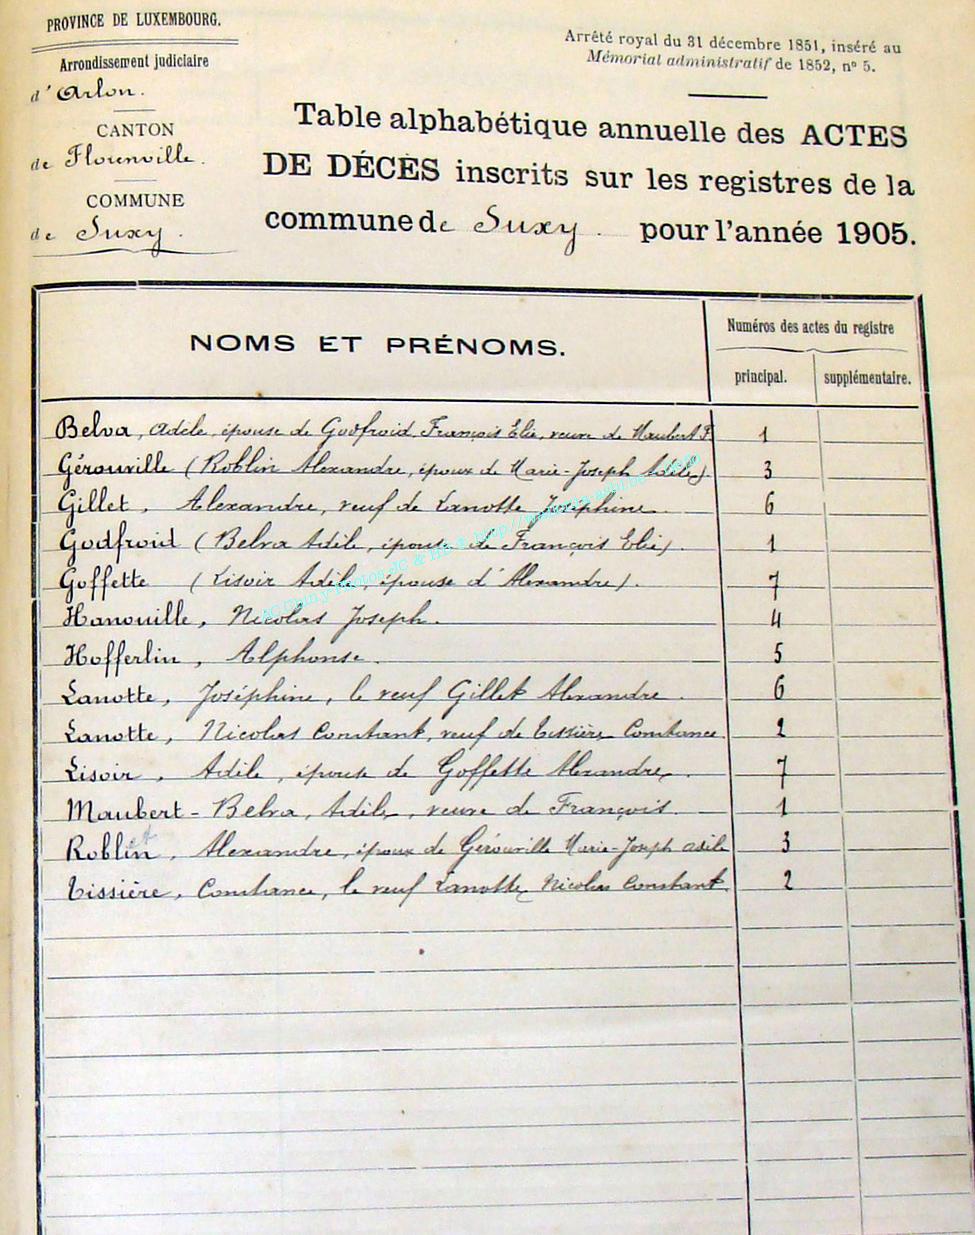 PROVINCE DE LUXEMBOURG.
Arrondissement judiciaire
d'Arlon.
CANTON
de Florenville.
COMMUNE
de Suxy.
Arrêté royal du 31 décembre 1851, inséré au
Mémorial administratif de 1852, n° 5.
Table alphabétique annuelle des ACTES
DE DÉCÈS inscrits sur les registres de la
commune de Suxy. pour l'année 1905.
NOMS ET PRÉNOMS.
Numéros des actes du registre
principal. supplémentaire.
Belva, Adèle, épouse de Godfroid, François Elie, veuve de Maubert F. 1
Gérouville (Roblin Alexandre, époux de Marie-Joseph Adèle). 3
Gillet, Alexandre, veuf de Lanotte Joséphine. 6
Godfroid (Belva Adèle, épouse de François Elie). 1
Goffette (Lisoir Adèle, épouse d'Alexandre). 7
Hanouille, Nicolas Joseph. 4
Hofferlin, Alphonse. 5
Lanotte, Joséphine, le veuf Gillet Alexandre 6
Lanotte, Nicolas Constant, veuf de Tissière Constance. 2
Lisoir, Adèle, épouse de Goffette Alexandre. 7
Maubert - Belva, Adèle, veuve de François. 1
Roblin, Alexandre, époux de Gérouville Marie-Joseph adèle 3
Tissière, Constance, le veuf Lanotte Nicolas Constant. 2